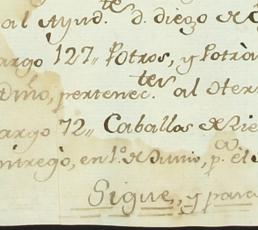 al Ayud.te d. diego de
argo 127,, Potros, y Potra
Dño, pertenec.tes al
argo 72,, Caballos de
ntregó, en 1.º de Junio, p.a el
Sigue,, y para